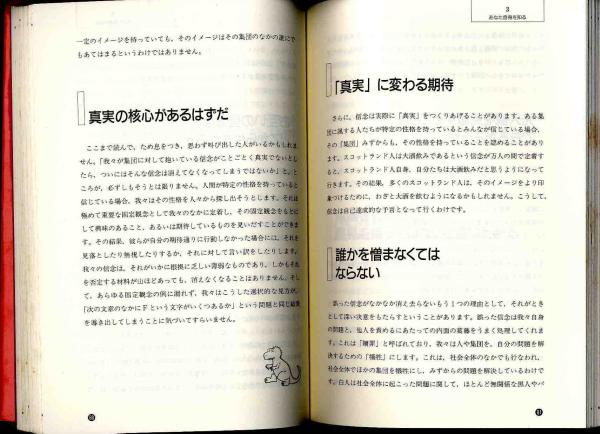 一定のイメージを持っていても、そのイメージはその集団のなかの誰にで
もあてはまるというわけではありません。
真実の核心があるはずだ
ここまで読んで、ため息をつき、思わず叫び出した人がいるかもしれま
せん。「我々が集団に対して抱いている信念がことごとく真実でないとし
たら、ついにはそんな信念は消えてなくなってしまうではないか」と。と
ころが、必ずしもそうとは限りません。人間が特定の性格を持っていると
信じている場合、我々はその性格を人々から探し出そうとします。それは
極めて重要な固定観念として我々のなかに定着し、その固定観念をもとに
して興味のあること、あるいは期待しているものを見いだすことができま
す。その結果、彼らが自分の期待通りに行動しなかった場合には、それを
見落としたり無視したりするか、それに対して言い訳をしたりします。
我々の信念は、それがいかに根拠に乏しい薄弱なものであり、しかもそれ
を否定する材料が出ほどあっても、消えなくなることはありません。そし
て、あらゆる固定観念の例に漏れず、我々はこうした選択的な見方が、
「次の文章のなかにFという文字がいくつあるか」という問題と同じ結果
を導き出してしまうことに気づいてすらいません。
60
3
あなた自身を知る
「真実」に変わる期待
さらに、信念は実際に「真実」をつくりあげることがあります。ある集
団に属する人たちが特定の性格を持っているとみんなが信じている場合、
その「集団」みずからも、その性格を持っていることを認めることがあり
ます。スコットランド人は大酒飲みであるという信念が万人の間で定着す
ると、スコットランド人自身、自分たちは大酒飲みだと思うようになって
行きます。その結果、多くのスコットランド人は、そのイメージをより印
象づけるために、わざと大酒を飲むようになるかもしれません。こうして、
信念は自己達成的な予言となって行くわけです。
誰かを憎まなくては
ならない
誤った信念がなかなか消え去らないもう1つの理由として、それがとき
として深い決意をもたらすということがあります。誤った信念は我々自身
の問題と、他人を責めるにあたっての内面の葛藤をうまく処理してくれま
す。これは「贖罪」と呼ばれており、我々は人や集団を、自分の問題を解
決するための「犠牲」にします。これは、社会全体のなかでも行なわれ、
社会全体でほかの集団を犠牲にし、みずからの問題を解決しているわけで
す。白人は社会全体に起こった問題に関して、ほとんど無関係な黒人やパ
61